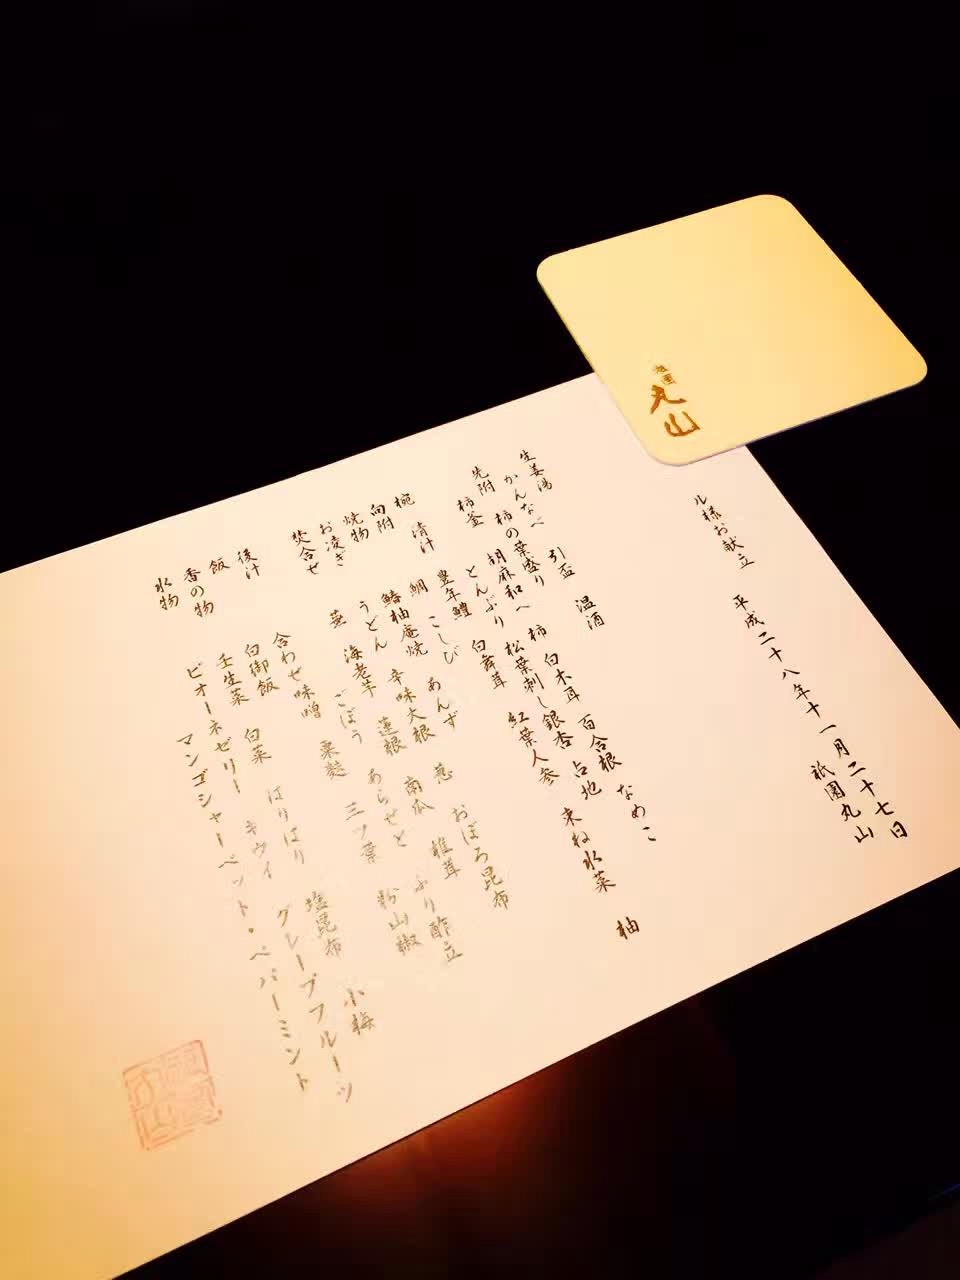 ル様お献立 平成二十八年十一月二十七日
祇園丸山
生姜湯 引盃 温酒
かんなべ
先附 柿の葉盛り 柿 白木耳 百合根 なめこ
柿釜 胡麻和へ 松葉刺し銀杏 占地 束ね水菜 柚
とんぶり 白舞茸 紅葉人参
椀 清汁 豊年鱧
向附 鯛 こしび あんず 葱 おぼろ昆布
焼物 鰆柚庵焼 辛味大根 南瓜 椎茸 ふり酢立
お凌ぎ うどん 蓮根 あられそと 粉山椒
焚合せ 蕪 海老芋 ごぼう 粟麩 三ツ葉
後汁 合わせ味噌
飯 白御飯
香の物 壬生菜 白菜 はりはり 塩昆布 小梅
水物 ビオーネゼリー キウイ グレープフルーツ
マンゴシャーベット・ペパーミント
祇園
丸山